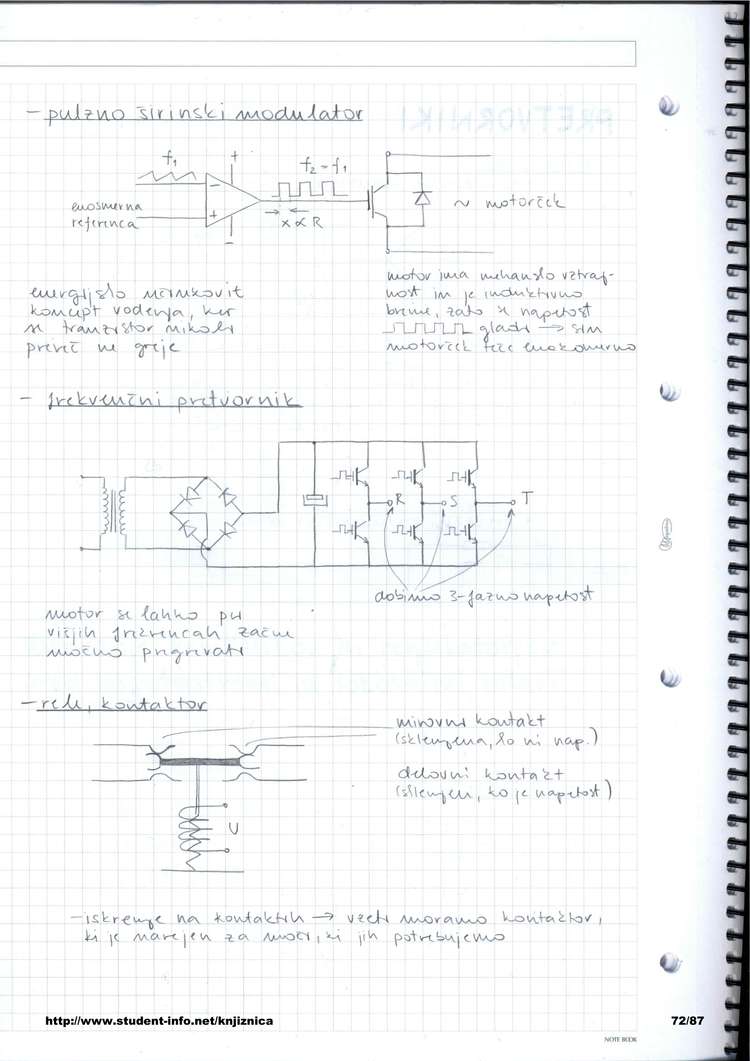 - pulzno širinski modulator
f₁
+
f₂ = f₁
enosmerna
referenca
−
+
−
x ∝ R
~ motorček
energijsko učinkovit
koncept vodenja, ker
se tranzistor nikoli
preveč ne greje
motor ima mehansko vztraj-
nost in je induktivno
breme, zato se napetost
gladi → sim
motorček teče enakomerno
- frekvenčni pretvornik
R
S
T
dobimo 3-fazno napetost
motor se lahko pri
višjih frekvencah začne
močno pregrevati
- rele, kontaktor
mirovni kontakt
(sklenjena, ko ni nap.)
delovni kontakt
(sklenjen, ko je napetost)
U
- iskrenje na kontaktih → vzeti moramo kontaktor,
ki je narejen za moči, ki jih potrebujemo
http://www.student-info.net/knjiznica
72/87
NOTE BOOK